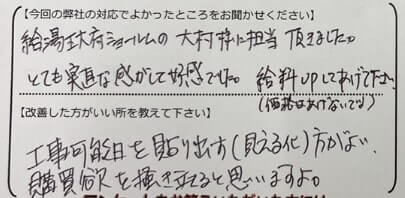 【今回の弊社の対応でよかったところをお聞かせください】
給湯王政府ショールムの 大村様に担当 頂きました。
とても実直な感がして好感でした。 給料UPしてあげて下さい
(価格はあげないで!)
【改善した方がいい所を教えて下さい】
工事可能日を貼り出す(見える化)方がよい
購買欲を掻き立てると思いますよ。